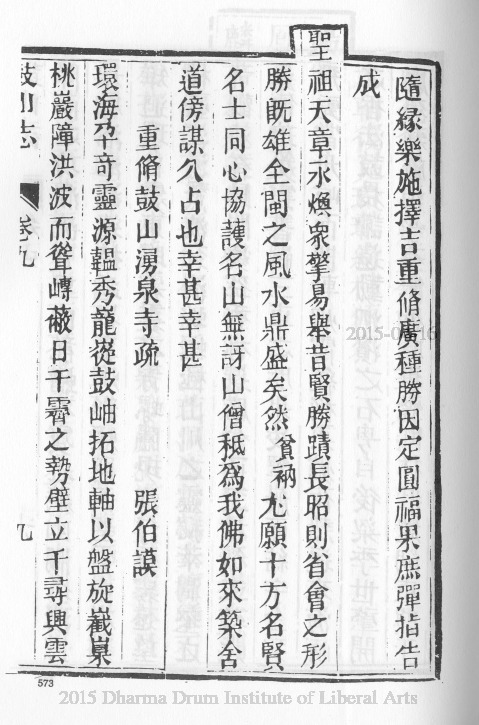 隨緣樂施擇吉重脩廣種勝因定圓福果庶彈指告
成
聖祖天章水煥衆擎易舉昔賢勝蹟長昭則省會之形
勝旣雄全閩之風水鼎盛矣然貧衲尤願十方名賢
名士同心協護名山無訝山僧秪爲我佛如來築舍
道傍謀久占也幸甚幸甚
重脩鼓山湧泉寺疏 張伯謨
環海孕奇靈源韞秀巃嵸鼓岫拓地軸以盤旋嶻
桃巖障洪波而聳崿蔽日干霄之勢壁立千尋興雲
鼓山志 卷九 九
573
2015 Dharma Drum Institute of Liberal Arts